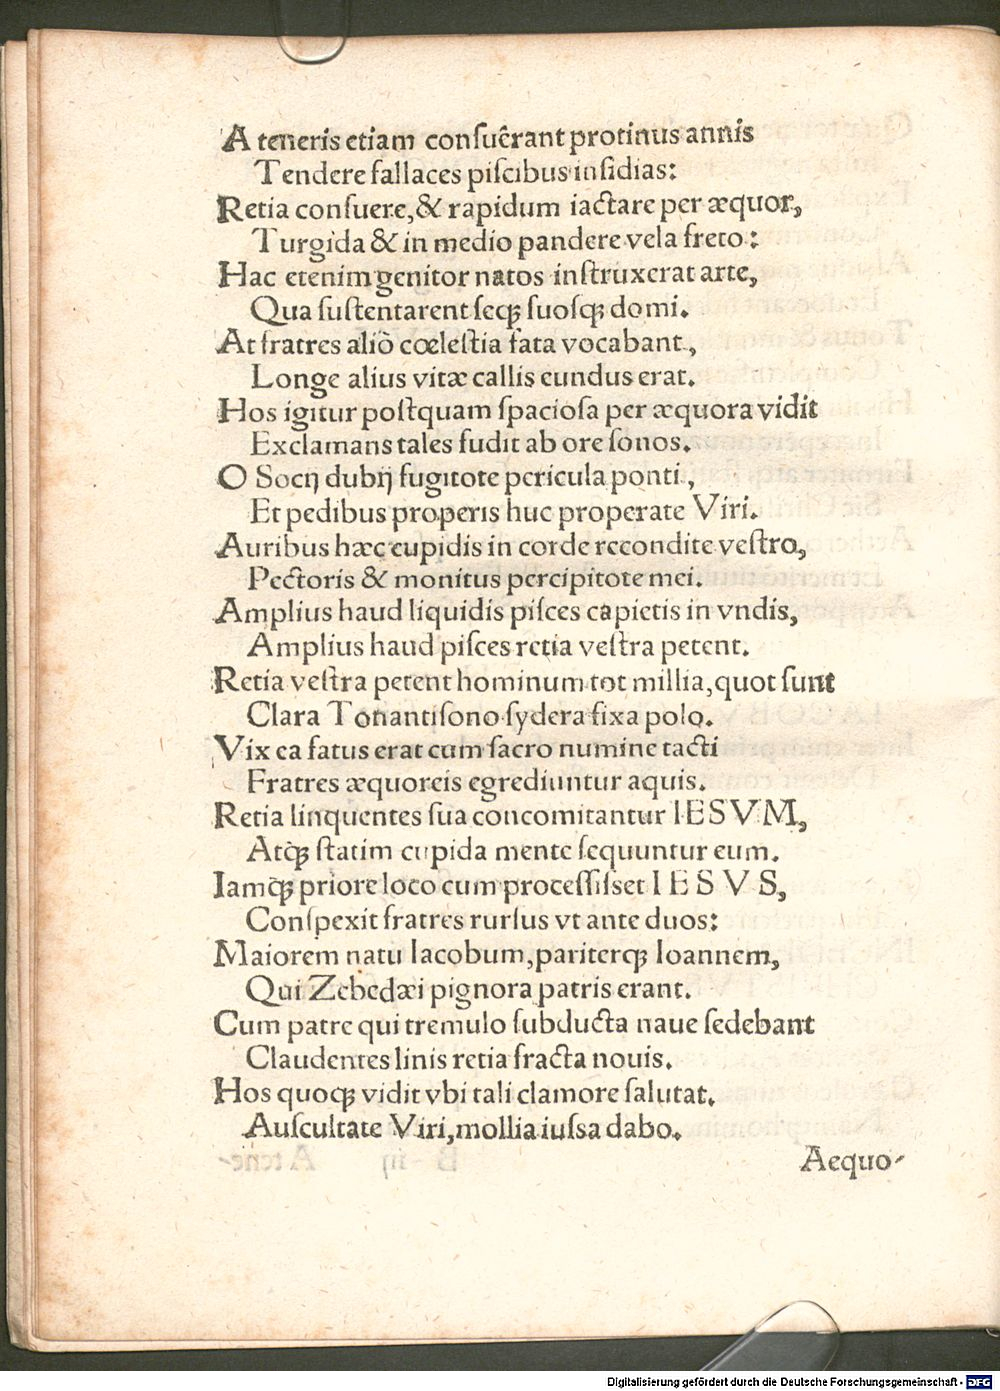 A teneris etiam conſuêrant protinus annis
Tendere fallaces piſcibus inſidias:
Retia conſuere, & rapidum iactare per æquor,
Turgida & in medio pandere vela freto:
Hac etenim genitor natos inſtruxerat arte,
Qua ſuſtentarent ſeqꝫ ſuoſqꝫ domi.
At fratres aliò cœleſtia fata vocabant,
Longe alius vitæ callis eundus erat.
Hos igitur poſtquam ſpacioſa per æquora vidit
Exclamans tales fudit ab ore ſonos.
O Socij dubij fugitote pericula ponti,
Et pedibus properis huc properate Viri.
Auribus hæc cupidis in corde recondite veſtro,
Pectoris & monitus percipitote mei.
Amplius haud liquidis piſces capietis in vndis,
Amplius haud piſces retia veſtra petent.
Retia veſtra petent hominum tot millia, quot ſunt
Clara Tonantiſono ſydera fixa polo.
Vix ea fatus erat cum ſacro numine tacti
Fratres æquoreis egrediuntur aquis.
Retia linquentes ſua concomitantur IESVM,
Atqꝫ ſtatim cupida mente ſequuntur eum.
Iamqꝫ priore loco cum proceſſiſset IESVS,
Conſpexit fratres rurſus vt ante duos:
Maiorem natu Iacobum, pariterqꝫ Ioannem,
Qui Zebedæi pignora patris erant.
Cum patre qui tremulo ſubducta naue ſedebant
Claudentes linis retia fracta nouis.
Hos quoqꝫ vidit vbi tali clamore ſalutat.
Auſcultate Viri, mollia iuſsa dabo.
Aequo-
Digitalisierung gefördert durch die Deutsche Forschungsgemeinschaft - DFG